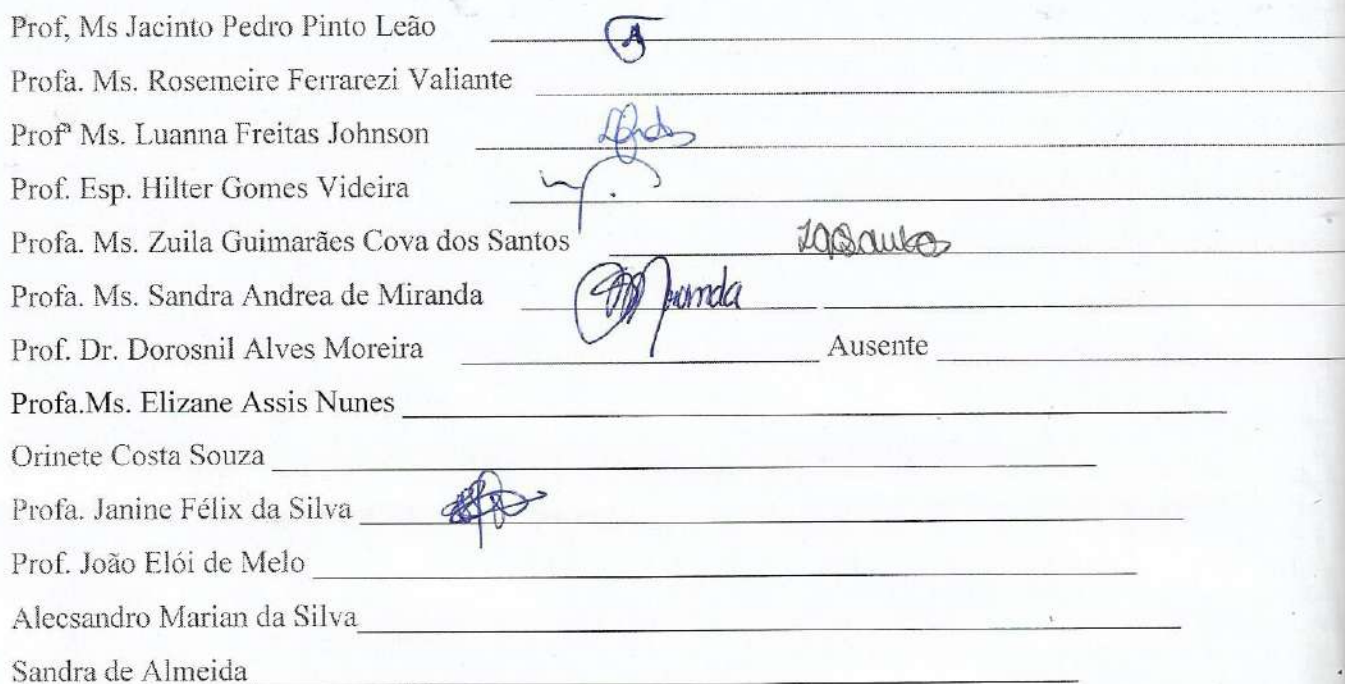 Prof, Ms Jacinto Pedro Pinto Leão
Profa. Ms. Rosemeire Ferrarezi Valiante
Profª Ms. Luanna Freitas Johnson
Prof. Esp. Hilter Gomes Videira
Profa. Ms. Zuila Guimarães Cova dos Santos
Profa. Ms. Sandra Andrea de Miranda
Prof. Dr. Dorosnil Alves Moreira Ausente
Profa.Ms. Elizane Assis Nunes
Orinete Costa Souza
Profa. Janine Félix da Silva
Prof. João Elói de Melo
Alecsandro Marian da Silva
Sandra de Almeida